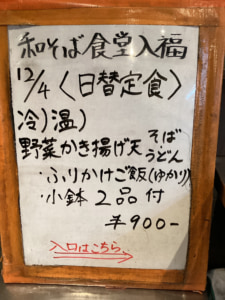 和そば食堂入福
12/4〈日替定食〉
冷)温)
野菜かき揚げ天そばうどん
・ふりかけご飯(ゆかり)
・小鉢2品付
¥900-
入口はこちら